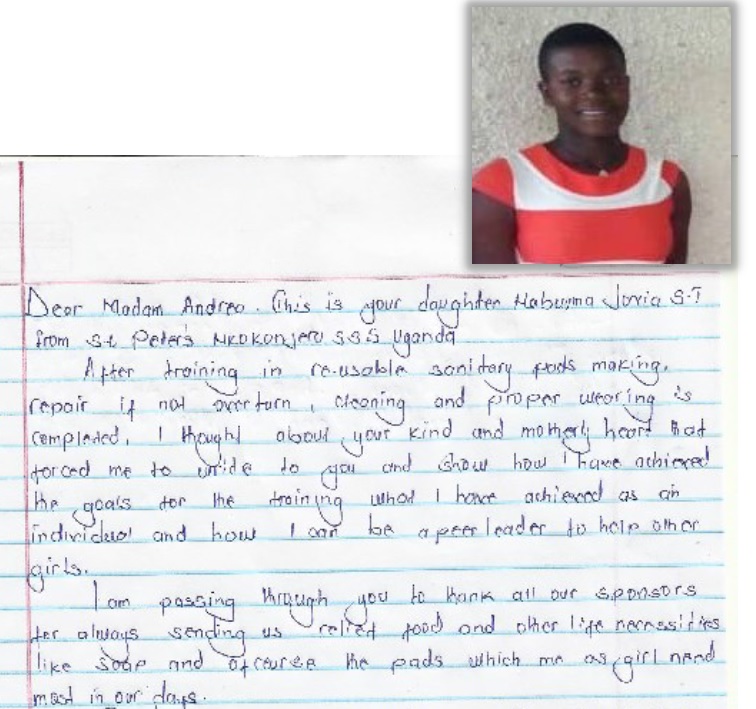 Dear Madam Andrea. This is your daughter Nabuuma Jovia S.T
from St Peter's Nkokonjeru S.S.S Uganda
After training in re-usable sanitary pads making,
repair if not overturn, cleaning and proper wearing is
completed. I thought about your kind and motherly heart that
forced me to write to you and show how I have achieved
the goals for the training what I have achieved as an
individual and how I can be a peer leader to help other
girls.
I am passing through you to thank all our sponsors
for always sending us relief food and other life neccessities
like soap and ofcourse the pads which me as girl need
most in our days.